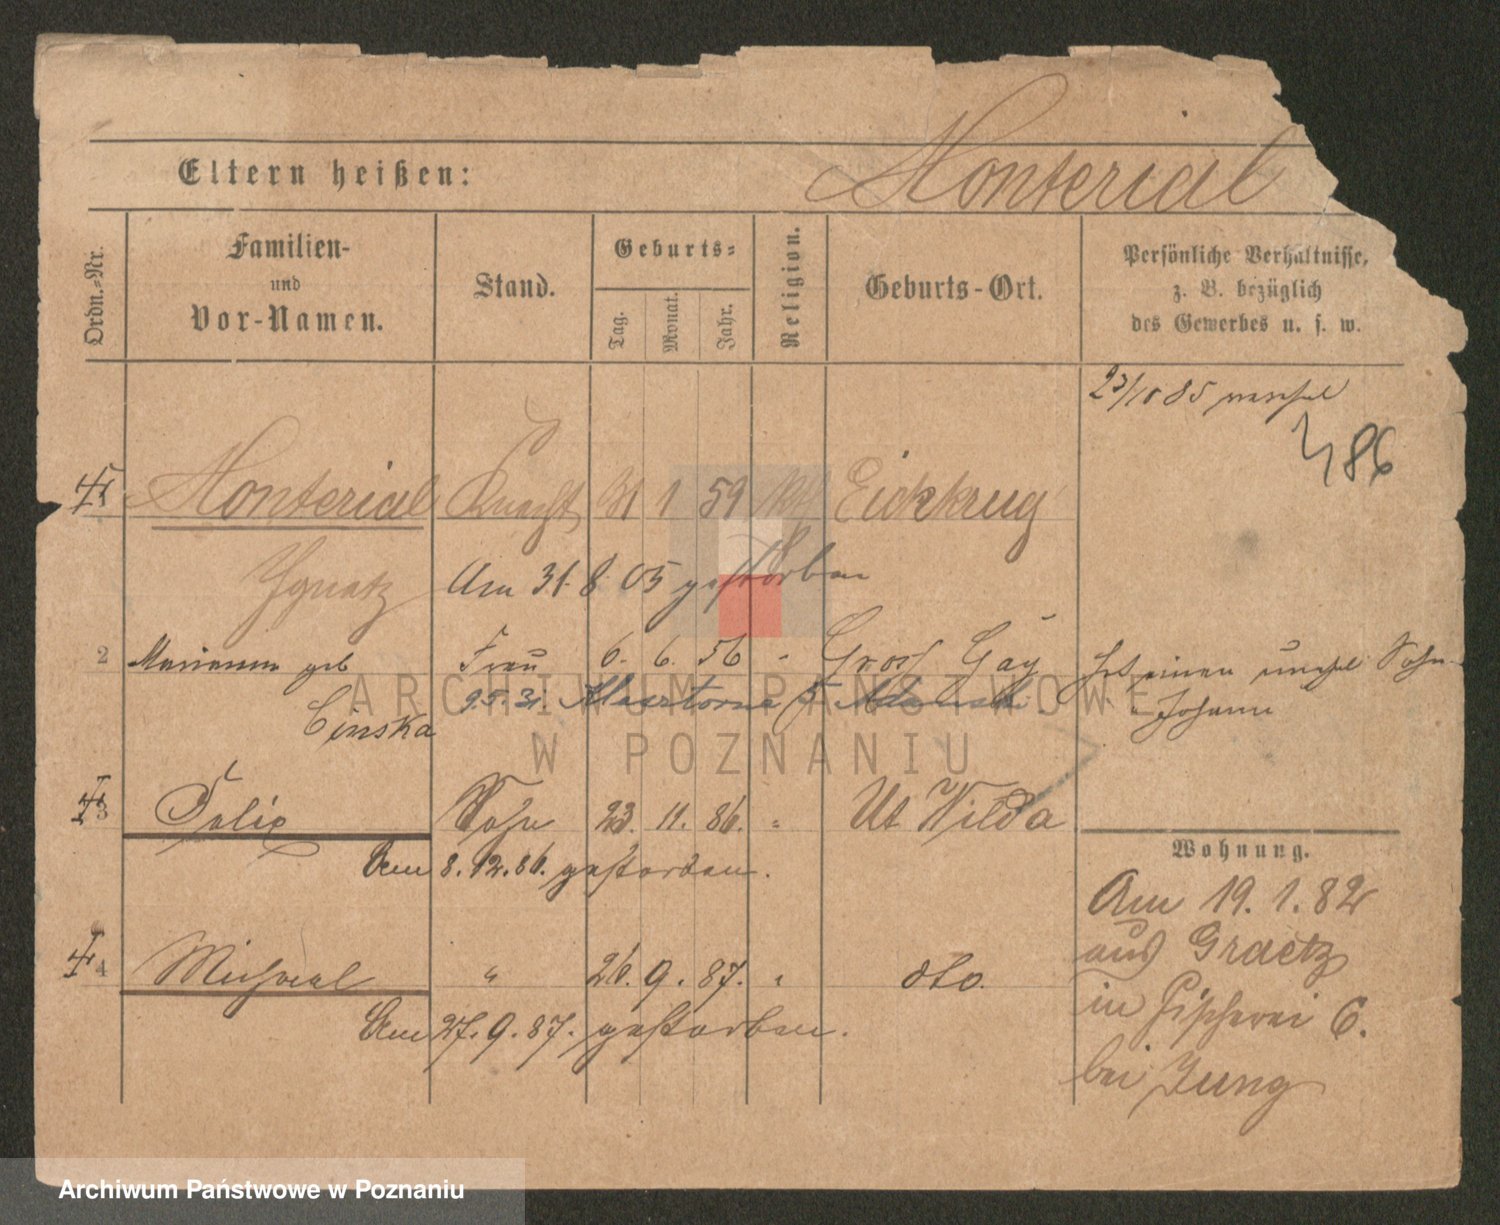 Eltern heißen: Monterial
Ordn.-Nr.
Familien-
und
Vor-Namen.
Stand.
Geburts-
Tag.
Monat.
Jahr.
Religion.
Geburts-Ort.
Persönliche Verhältnisse,
z. B. bezüglich
des Gewerbes u. s. w.
23/10 85
486
1 Monterial Knecht 31 1 59 kt Eickkrug
Ignatz Am 31. 8. 05 gestorben
2 Marianna geb Frau 6. 6. 56 " Gross Gay Hat einen unehel Sohn
9.5.31. Klasztorna 5
Johann
Cinska
3 Felix Sohn 23. 11. 86. " Ut Wilda
Am 8.12.86. gestorben.
4 Michael " 26. 9. 87. " dto.
Am 27.9.87. gestorben.
Wohnung.
Am 19.1.82
aus Graetz
in Fischerei 6.
bei Jung
ARCHIWUM PAŃSTWOWE
W POZNANIU
Archiwum Państwowe w Poznaniu